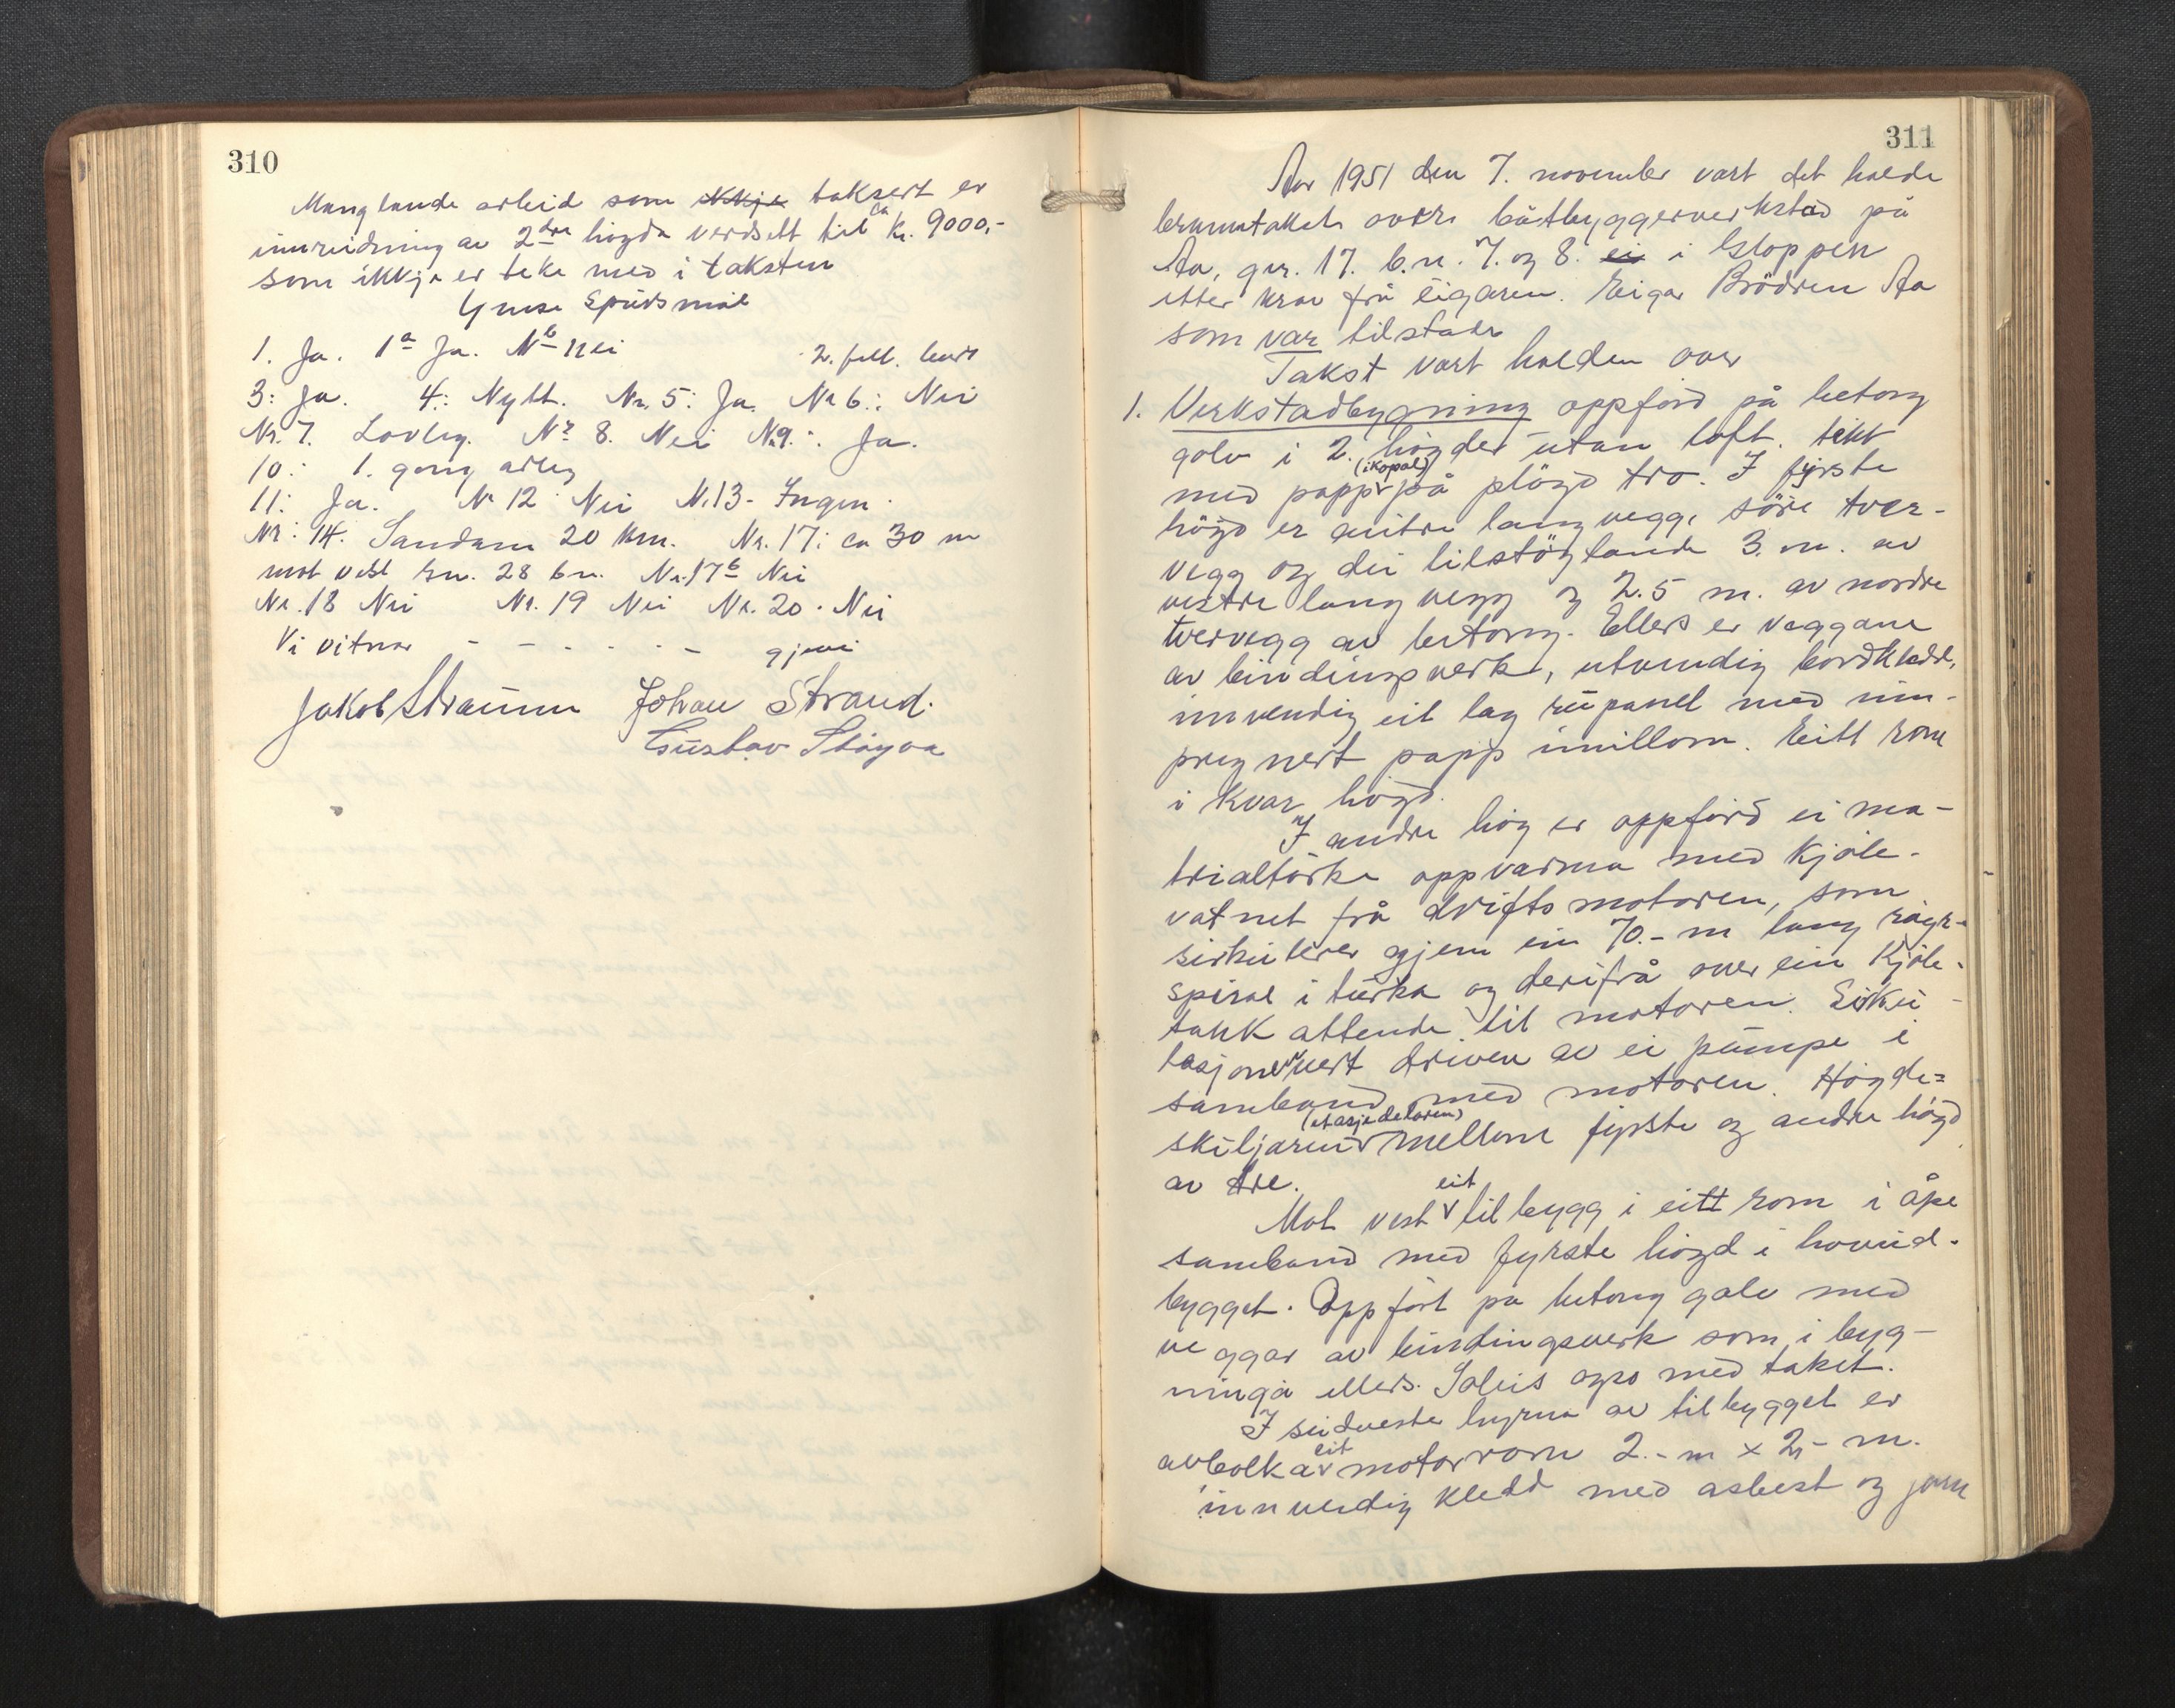 310
Manglande arbeid som ikkje taksert er
innreidning av 2dre høgda verdsett til ca kr. 9000,-
som ikkje er teke med i taksten
Ymse Spursmål
1. Ja. 1a Ja. Nb nei 2. full. bert
3: Ja. 4: Nytt. Nr. 5: Ja. Nr 6: Nei
Nr. 7. Lovleg. Nr 8. Nei Nr. 9: Ja.
10: 1. gong årleg
11: Ja. Nr 12 Nei Nr. 13 - Ingen.
Nr: 14. Sandane 20 km. Nr. 17: ca 30 m
mot vest gnr. 28 bnr. Nr. 17b Nei
Nr. 18 Nei Nr. 19 Nei Nr. 20. Nei
Vi vitnar - - - - - - gjevi
Jakob Straume Johan Strand.
Gustav Støyva
311
Aar 1951 den 7. november vart det halde
branntakst over båtbyggerverkstad på
Aa, gnr. 17. b.n. 7. og 8. ei i Gloppen
etter krav frå eigaren. Eigar Brödrene Aa
som var tilstade
Takst vart halden over
1. Verkstadbygning oppförd på betong
golv i 2. högder utan loft. tekt
med papp (ikopal) på plögd tro. I fyrste
högd er austre langvegg, söre tver-
vegg og dei tilstöytande 3. m. av
vestre langvegg og 2.5 m. av nordre
tvervegg av betong. Ellers er veggane
av bindingsverk, utvendig bordkledd,
innvendig eit lag rupanel med im-
pregnert papp imillom. Eitt rom
i kvar högd.
I andre høg er oppförd ei ma-
trialtörke oppvarma med kjöle-
vatnet frå driftsmotoren, som
sirkulerer gjenom ein 70.- m lang røyr-
spiral i turka og derifrå over ein kjöle-
tank attende til motoren. Sirku-
lasjonen vert driven av ei pumpe i
samband med motoren. Högde=
skiljaren (etasjedelaren) mellom fyrste og andre högd
av tre.
Mot vest eit tilbygg i eitt rom i åpe
samband med fyrste högd i hovud-
bygget. Oppfört på betong golv med
veggar av bindingsverk som i byg-
ninga ellers. Soleis ogso med taket.
I sudvestre hyrna av tilbygget er
avbolka eit motorrom 2.- m x 2,- m.
innvendig kledd med asbest og jarn